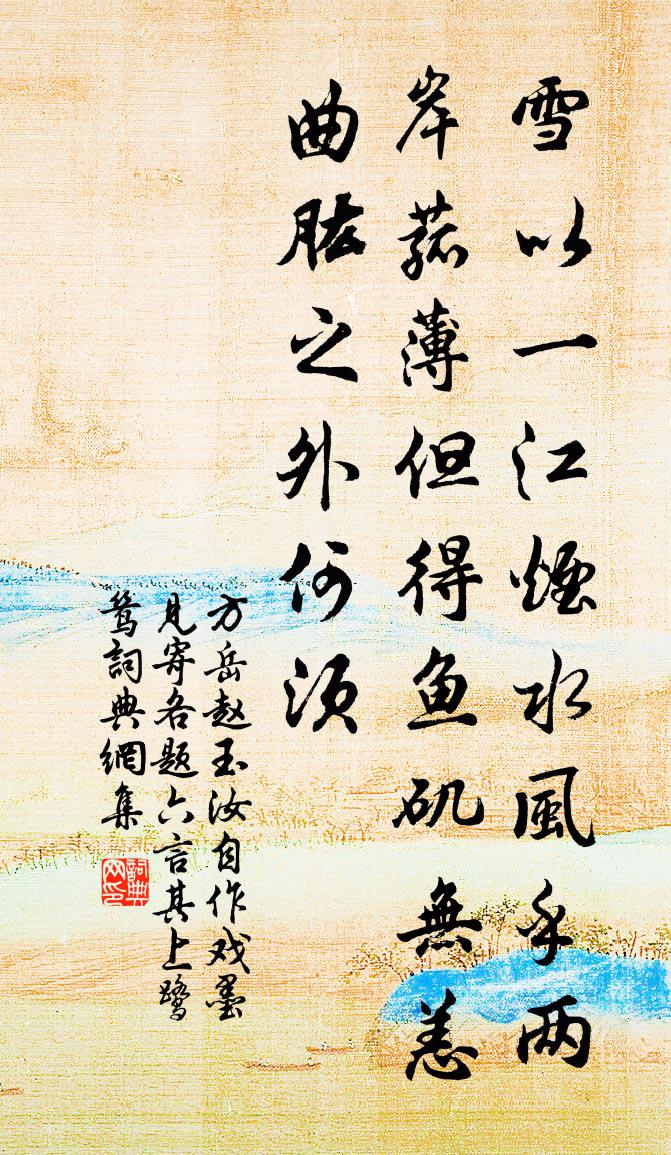 雪以一江煙水風乎两
岸菰薄但得鱼矶無恙
曲肱之外何須
方岳赵玉汝自作戏墨
見寄各題六言其上鹭
鸶詞典網集
詞典网印